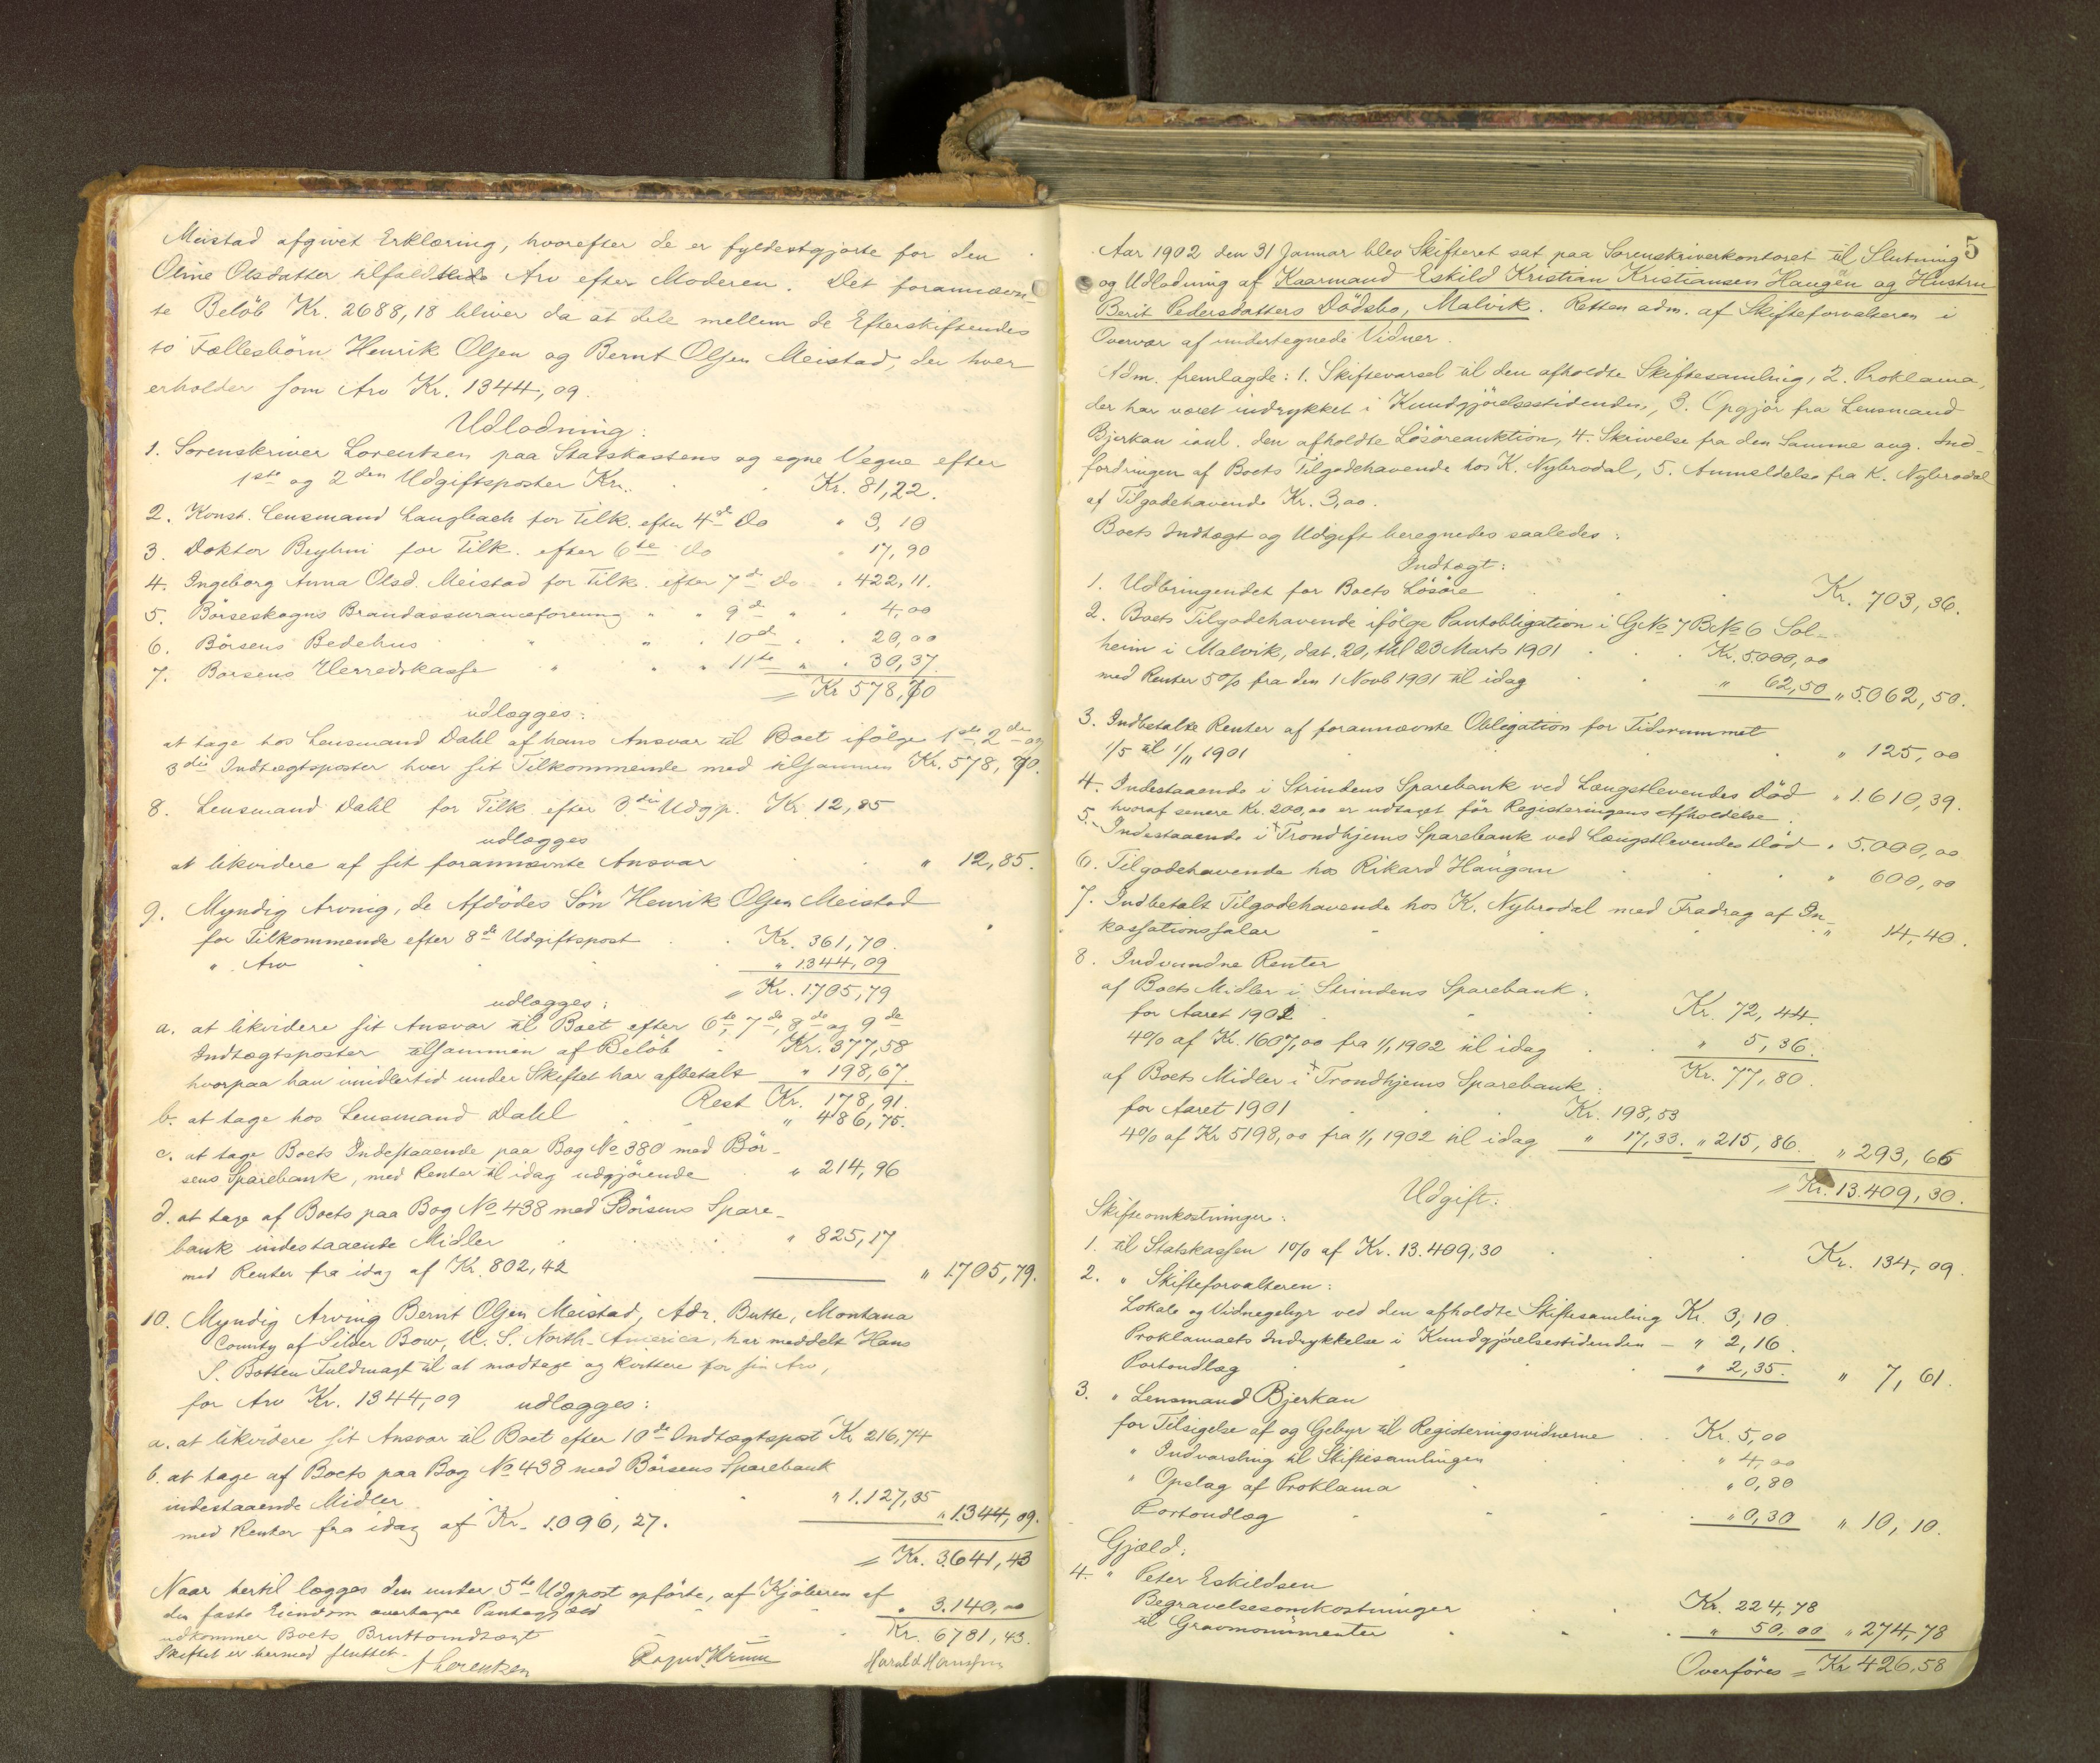 Meistad afgivet Erklæring, hvorefter de er fyldestgjorte for den
Oline Olsdatter tilfaldende Arv efter Moderen. Det forannævn-
te Beløb Kr. 2688,18 bliver da at dele mellem de Efterskiftendes
to Fællesbörn Henrik Olsen og Bernt Olsen Meistad, der hver
erholder som Arv Kr. 1344,09.
Udlodning:
1. Sorenskriver Lorentzen paa Statskassens og egne Vegne efter
1ste og 2den Udgiftsposter Kr. Kr. 81,22.
2. Konst. Lensmand Langbach for Tilk. efter 4de Do " 3,10
3. Doktor Bryhni for Tilk. efter 6te Do " 17,90
4. Ingeborg Anna Olsd. Meistad for Tilk. efter 7de Do " 422,11.
5. Börseskogns Brandassuranceforening " " 9de " " 4,00
6. Börsens Bedehus " " " 10de " " 20,00
7. Börsens Herredskasse " " " 11te " " 30,37.
= Kr 578,70
udlægges:
at tage hos Lensmand Dahl af hans Ansvar til Boet ifölge 1ste, 2den og
3die Indtægtsposter hver sit Tilkommende med tilsammen Kr. 578,70.
8. Lensmand Dahl for Tilk. efter 3die Udgp. Kr. 12,85
udlægges
at likvidere af sit forannævnte Ansvar " 12,85.
9. Myndig Arving, de Afdödes Sön Henrik Olsen Meistad
for Tilkommende efter 8de Udgiftspost Kr. 361,70.
" Arv " 1344,09
= Kr. 1705,79
udlægges:
a. at likvidere sit Ansvar til Boet efter 6te, 7de, 8de og 9de
Indtægtsposter tilsammen af Belöb Kr. 377,58
hvorpaa han imidlertid under Skiftet har afbetalt " 198,67.
Rest Kr. 178,91.
b. at tage hos Lensmand Dahl " 486,75.
c. at tage Boets Indestaaende paa Bog No 380 med Bör-
sens Sparebank, med Renter til idag udgjörende " 214,96
d. at tage af Boets paa Bog No 438 med Börsens Spare-
bank indestaaende Midler " 825,17
med Renter fra idag af Kr. 802,42 " 1705,79.
10. Myndig Arving Bernt Olsen Meistad, Adr. Butte, Montana
County af Silver Bow, U. S. North-America, har meddelt Hans
S. Botten Fuldmagt til at modtage og kvittere for sin Arv,
for Arv Kr. 1344,09 udlægges:
a. at likvidere sit Ansvar til Boet efter 10de Indtægtspost Kr 216,74
b. at tage af Boets paa Bog No 438 med Börsens Sparebank
indestaaende Midler " 1.127,35
med Renter fra idag af Kr. 1.096,27. " 1.344,09.
= Kr. 3.641,43
Naar hertil lægges den under 5te Udgpost opförte, af Kjöberen af
den faste Eiendom overtagne Pantegjæld " 3.140,00
udkommer Boets Bruttoindtægt Kr. 6781,43.
Skiftet er hermed sluttet.
A Lorentzen Harald Hansen
5
Aar 1902 den 31 Januar blev Skifteret sat paa Sorenskriverkontoret til Slutning
og Udlodning af Kaarmand Eskild Kristian Kristiansen Haugen og Hustru
Berit Pedersdatters Dödsbo, Malvik. Retten adm. af Skifteforvalteren i
Overvær af undertegnede Vidner.
Adm. fremlagde: 1. Skiftevarsel til den afholdte Skiftesamling, 2. Proklama,
der har været indrykket i Kundgjörelsestidenden, 3. Opgjör fra Lensmand
Bjerkan ianl. den afholdte Lösöreauktion, 4. Skrivelse fra den Samme ang. Ind-
fordringen af Boets Tilgodehavende hos K. Nybrodal, 5. Anmeldelse fra K. Nybrodal
af Tilgodehavende Kr. 3,00.
Boets Indtægt og Udgift beregnedes saaledes:
Indtægt:
1. Udbringendet for Boets Lösöre Kr. 703,36.
2. Boets Tilgodehavende ifölge Pantobligation i G.No 7 B.No 6 Sol-
heim i Malvik, dat. 20, thl 23 Marts 1901 Kr. 5.000,00
med Renter 5% fra den 1 Novb 1901 til idag " 62,50 " 5.062,50.
3. Indbetalte Renter af forannævnte Obligation for Tidsrummet
1/5 til 1/11 1901 " 125,00
4. Indestaaende i Strindens Sparebank ved Længstlevendes Död " 1.610,39.
hvoraf senere Kr. 200,00 er udtaget för Registreringens Afholdelse.
5. Indestaaende i Trondhjems Sparebank ved Længstlevendes Död " 5.000,00
6. Tilgodehavende hos Rikard Haugan " 600,00
7. Indbetalt Tilgodehavende hos K. Nybrodal med Fradrag af In-
kassationssalær " 14,40.
8. Indvundne Renter
af Boets Midler i Strindens Sparebank:
for Aaret 1901 Kr. 72,44.
4% af Kr. 1607,00 fra 1/1 1902 til idag " 5,36.
Kr. 77,80.
af Boets Midler i Trondhjems Sparebank:
for Aaret 1901 Kr. 198,53
4% af Kr 5198,00 fra 1/1 1902 til idag " 17,33. " 215,86. " 293,66
= Kr. 13.409,30.
Udgift:
Skifteomkostninger:
1. til Statskassen 1% af Kr. 13.409,30 Kr. 134,09.
2. " Skifteforvalteren:
Lokale og Vidnegebyr ved den afholdte Skiftesamling Kr. 3,10
Proklamaets Indrykkelse i Kundgjörelsestidenden - " 2,16.
Portoudlæg " 2,35. " 7,61.
3. " Lensmand Bjerkan
for Tilsigelse af og Gebyr til Registreringsvidnerne Kr. 5,00
" Indvarsling til Skiftesamlingen " 4,00
" Opslag af Proklama " 0,80
Portoudlæg " 0,30 " 10,10.
Gjæld:
4. " Peter Eskildsen
Begravelsesomkostninger Kr. 224,78
til Gravmonumenter " 50,00 " 274,78
Overföres = Kr 426,58